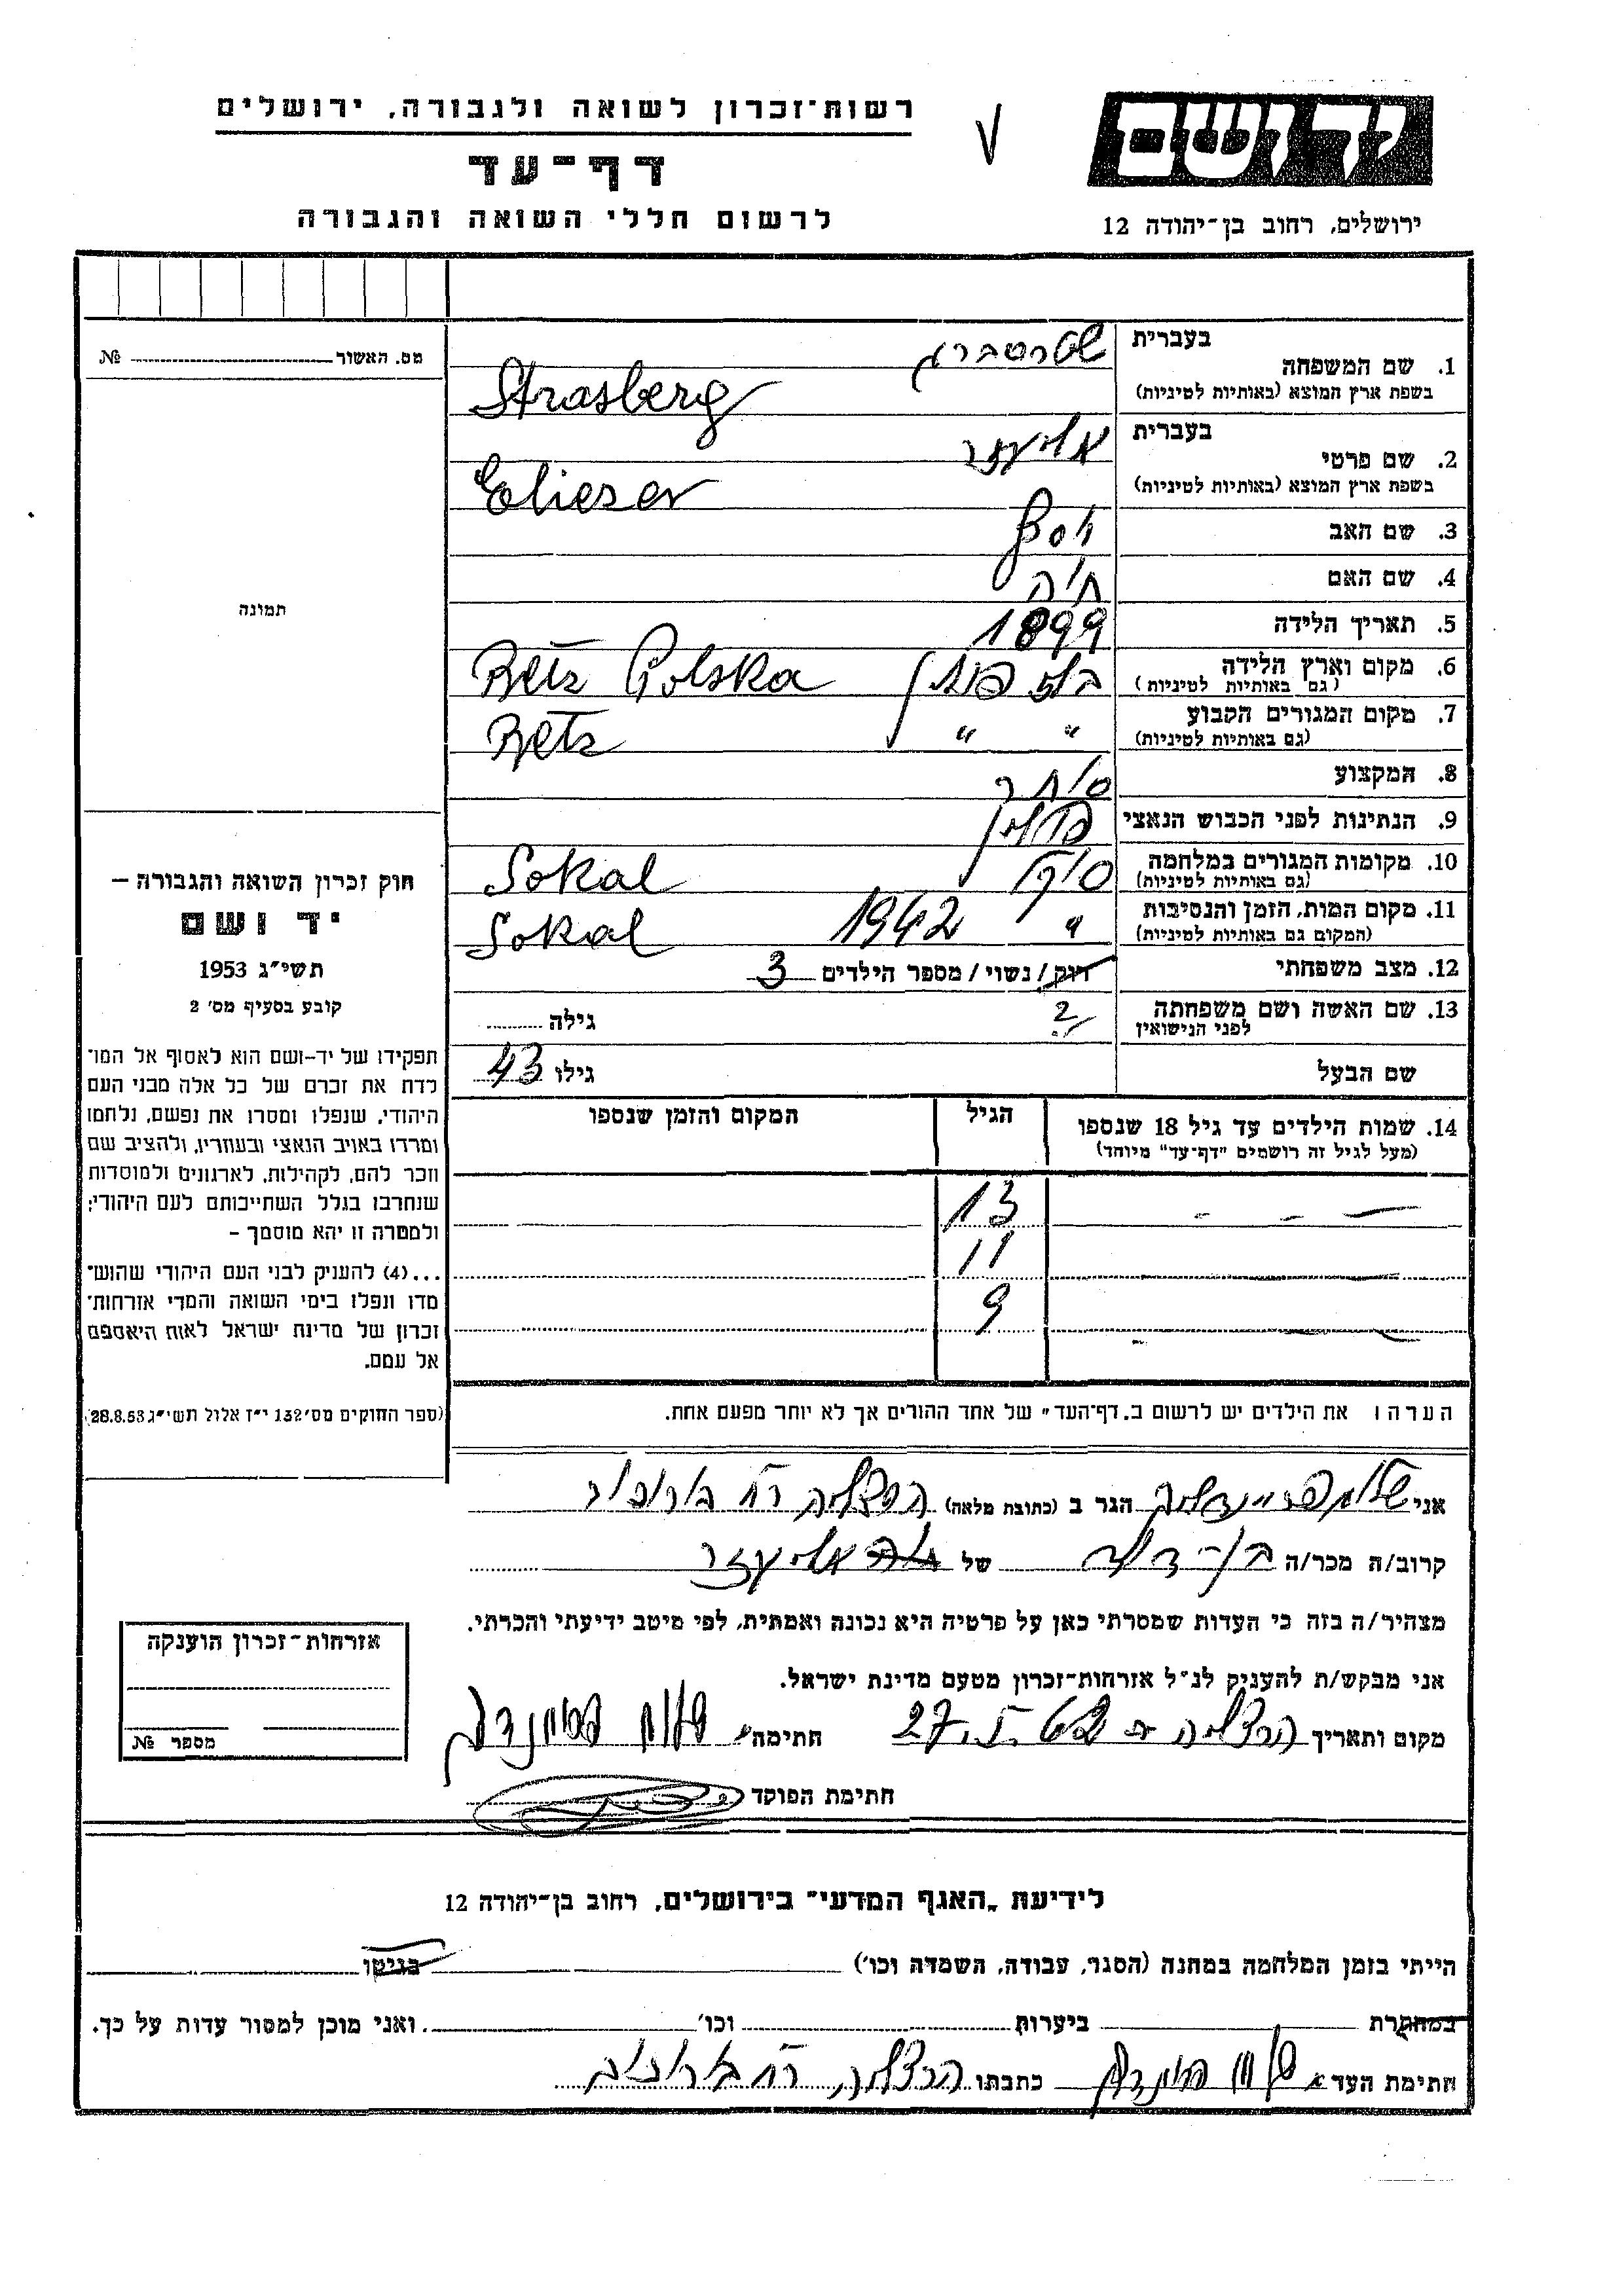 רשות־זכרון לשואה ולגבורה, ירושלים
דף־עד
לרשום חללי השואה והגבורה
יד ושם
ירושלים, רחוב בן־יהודה 12
מס. האשור № 
תמונה
חוק זכרון השואה והגבורה —
יד ושם
תשי״ג 1953
קובע בסעיף מס׳ 2
תפקידו של יד־ושם הוא לאסוף אל המו־
לדת את זכרם של כל אלה מבני העם
היהודי, שנפלו ומסרו את נפשם, נלחמו
ומרדו באויב הנאצי ובעוזריו, ולהציב שם
וזכר להם, לקהילות, לארגונים ולמוסדות
שנחרבו בגלל השתייכותם לעם היהודי;
ולמטרה זו יהא מוסמך –
...(4) להעניק לבני העם היהודי שהוש־
מדו ונפלו בימי השואה והמרי אזרחות־
זכרון של מדינת ישראל לאות היאספם
אל עמם.
(ספר החוקים מס׳ 132 י״ז אלול תשי״ג 28.8.53)
בעברית
1. שם המשפחה שטרסברג
בשפת ארץ המוצא (באותיות לטיניות) Strasberg
בעברית
2. שם פרטי אליעזר
בשפת ארץ המוצא (באותיות לטיניות) Elieser
3. שם האב יוסף
4. שם האם חיה
5. תאריך הלידה 1899
6. מקום וארץ הלידה בלז פולין Bełz Polska
(גם באותיות לטיניות)
7. מקום המגורים הקבוע " " Bełz
(גם באותיות לטיניות)
8. המקצוע סוחר
9. הנתינות לפני הכבוש הנאצי פולין
10. מקומות המגורים במלחמה סוקל Sokal
(גם באותיות לטיניות)
11. מקום המות, הזמן והנסיבות " 1942 Sokal
(המקום גם באותיות לטיניות)
12. מצב משפחתי רווק / נשוי / מספר הילדים 3
13. שם האשה ושם משפחתה ? גילה
לפני הנישואין
שם הבעל גילו 43
14. שמות הילדים עד גיל 18 שנספו הגיל המקום והזמן שנספו
(מעל לגיל זה רושמים "דף־עד" מיוחד)
13
11
9
הערה: את הילדים יש לרשום ב„דף־העד" של אחד ההורים אך לא יותר מפעם אחת.
אני הגר ב (כתובת מלאה) הרצליה רח
קרוב/ה מכר/ה בן־דוד של אליעזר
מצהיר/ה בזה כי העדות שמסרתי כאן על פרטיה היא נכונה ואמתית, לפי מיטב ידיעתי והכרתי.
אני מבקש/ת להעניק לנ״ל אזרחות־זכרון מטעם מדינת ישראל.
מקום ותאריך הרצליה חתימה
חתימת הפוקד
אזרחות־זכרון הוענקה
מספר №
לידיעת „האגף המדעי" בירושלים, רחוב בן־יהודה 12
הייתי בזמן המלחמה במחנה (הסגר, עבודה, השמדה וכו׳) בגיטו
במחתרת ביערות וכו׳ ואני מוכן למסור עדות על כך.
חתימת העד כתבתו הרצליה, רח